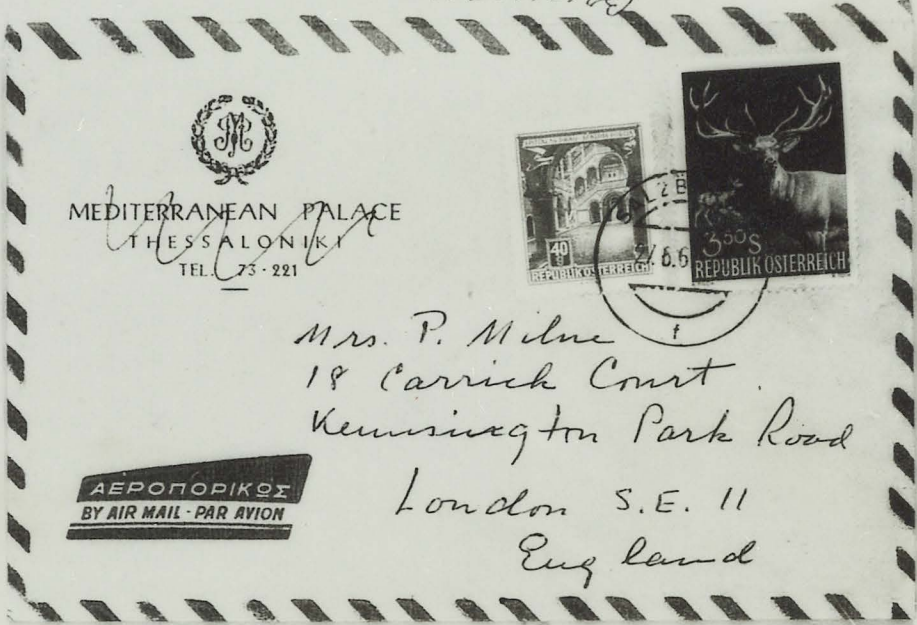 MP
MEDITERRANEAN PALACE
THESSALONIKI
TEL. 73-221
40
g
REPUBLIK ÖSTERREICH
3.50 S
REPUBLIK ÖSTERREICH
SALZB
27.8.6
f
Mrs. P. Milne
18 Carrick Court
Kennsington Park Road
London S.E. 11
England
ΑΕΡΟΠΟΡΙΚΩΣ
BY AIR MAIL - PAR AVION